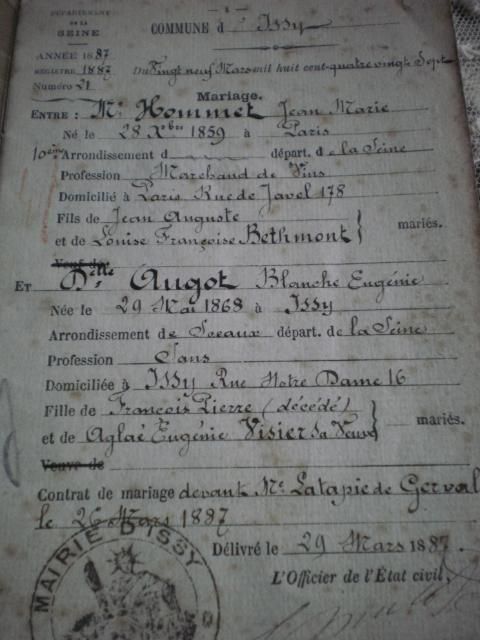 — 4 —
DÉPARTEMENT
DE LA
SEINE
COMMUNE d'Issy
ANNÉE 1887
REGISTRE 1887
Numéro 21
Du Vingt neuf Mars mil huit cent quatre vingt Sept
Mariage.
ENTRE : Mr Hommet Jean Marie
Né le 28 Xbre 1859 à Paris
10ème Arrondissement d départ. de la Seine
Profession Marchand de Vins
Domicilié à Paris Rue de Javel 178
Fils de Jean Auguste
et de Louise Françoise Bethmont } mariés.
Veuf de
ET Dlle Augot Blanche Eugénie
Née le 29 Mai 1868 à Issy
Arrondissement de Sceaux départ. de la Seine
Profession Sans
Domiciliée à Issy Rue Notre Dame 16
Fille de François Pierre (décédé)
et de Aglaé Eugénie Visier sa Veuve } mariés.
Veuve de
Contrat de mariage devant Me Latapie de Gerval
le 26 Mars 1887
Délivré le 29 Mars 1887.
L'Officier de l'État civil,
MAIRIE D'ISSY